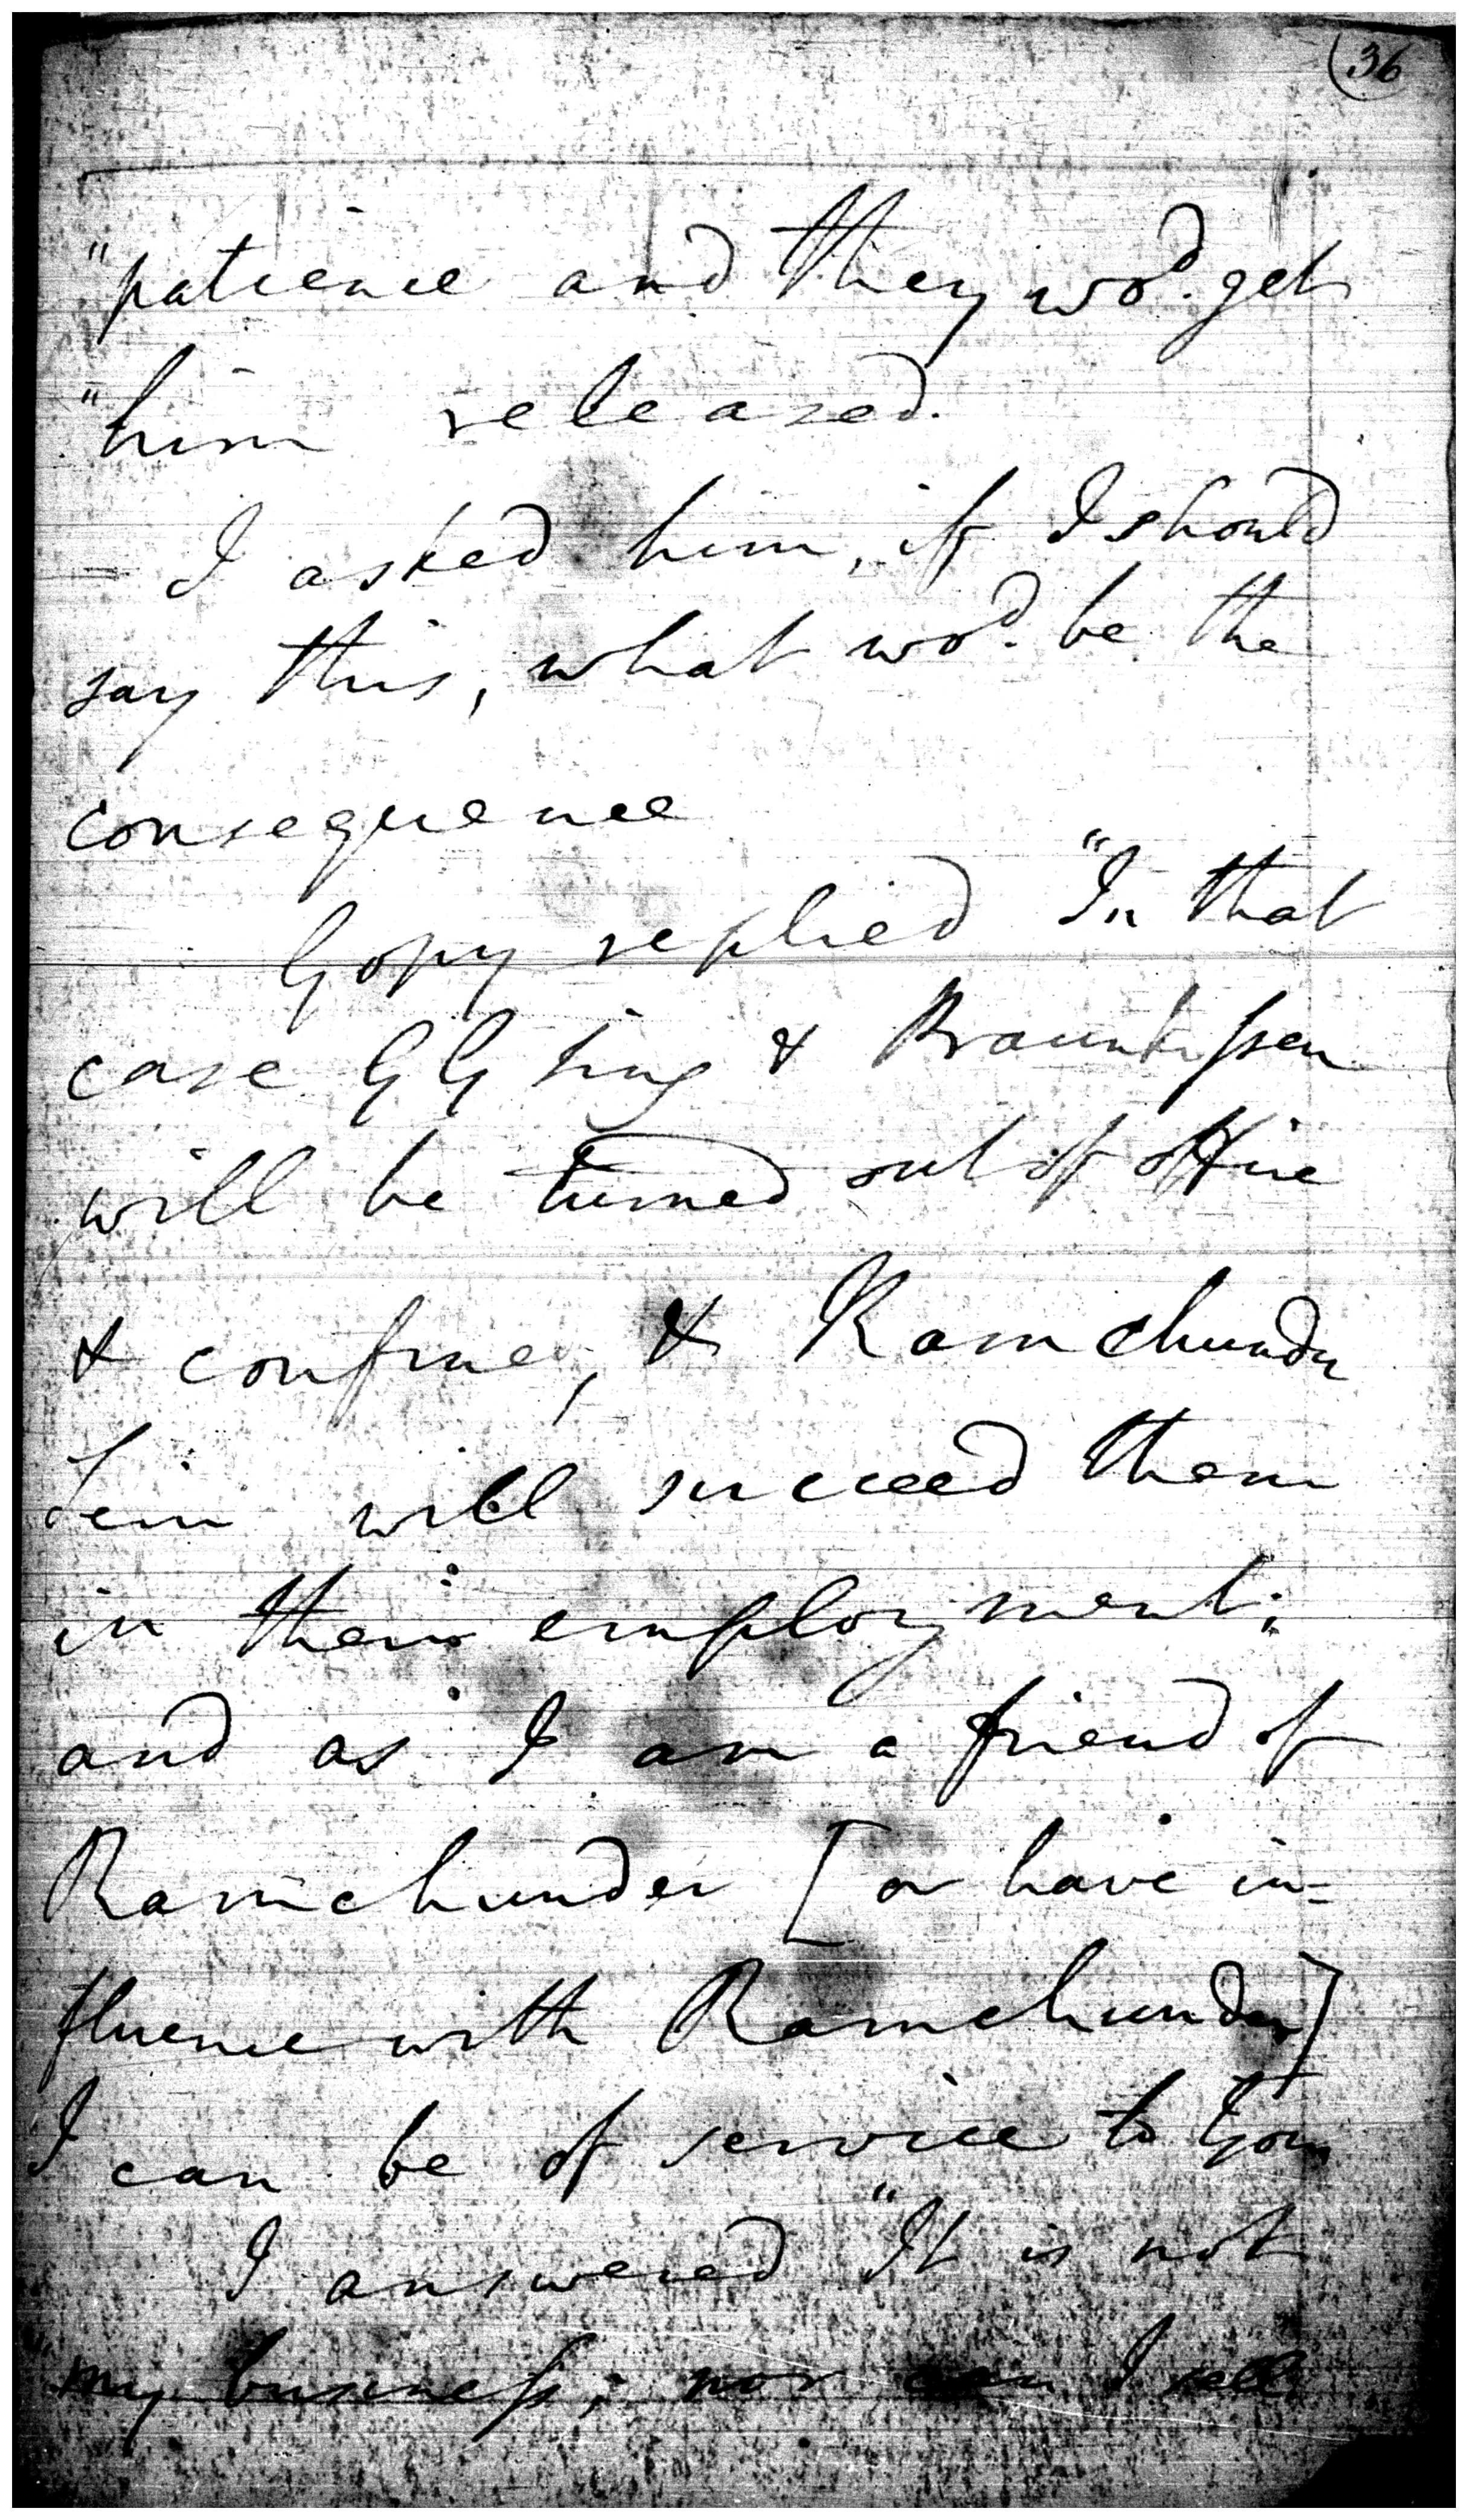 (36
"patience and they wod. get
"him released.
I asked him, if I should
say this, what wod. be the
consequence
Gopy replied "In that
case GG Sing &
will be turned out of office
& confine, & Ramchunder
Sein will succeed them
in their employment;
and as I am a friend of
Ramchunder [or have in=
fluence with Ramchunder]
I can be of service to you
I answered "It is not
my business; nor can I tell